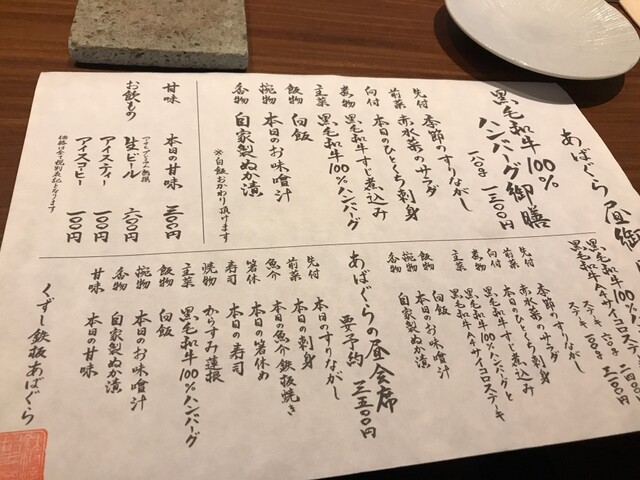 あばぐら 昼御
黒毛和牛100%
ハンバーグ御膳
一八〇g 一三〇〇円
先付 季節のすりながし
前菜 赤水菜のサラダ
向付 本日のひとくち刺身
煮物 黒毛和牛すじ煮込み
主菜 黒毛和牛100%ハンバーグ
飯物 白飯
椀物 本日のお味噌汁
香物 自家製ぬか漬
※白飯おかわり頂けます
甘味 本日の甘味 三〇〇円
お飲もの
生ビール 六〇〇円
アイスティー 一〇〇円
アイスコーヒー 一〇〇円
価格は全て税別表記となります
黒毛和牛100%
黒毛和牛A4サイコロステーキ
先付 季節のすりながし
前菜 赤水菜のサラダ
向付 本日のひとくち刺身
煮物 黒毛和牛すじ煮込み
主菜 黒毛和牛100%ハンバーグと
黒毛和牛A4サイコロステーキ
飯物 白飯
椀物 本日のお味噌汁
香物 自家製ぬか漬
あばぐらの昼会席
要予約 三五〇〇円
先付 本日のすりながし
前菜 本日の刺身
魚介 本日の魚介鉄板焼き
箸休 本日の箸休め
寿司 本日の寿司
焼物 からすみ蓮根
主菜 黒毛和牛100%ハンバーグ
飯物 白飯
椀物 本日のお味噌汁
香物 自家製ぬか漬
甘味 本日の甘味
くずし鉄板あばぐら